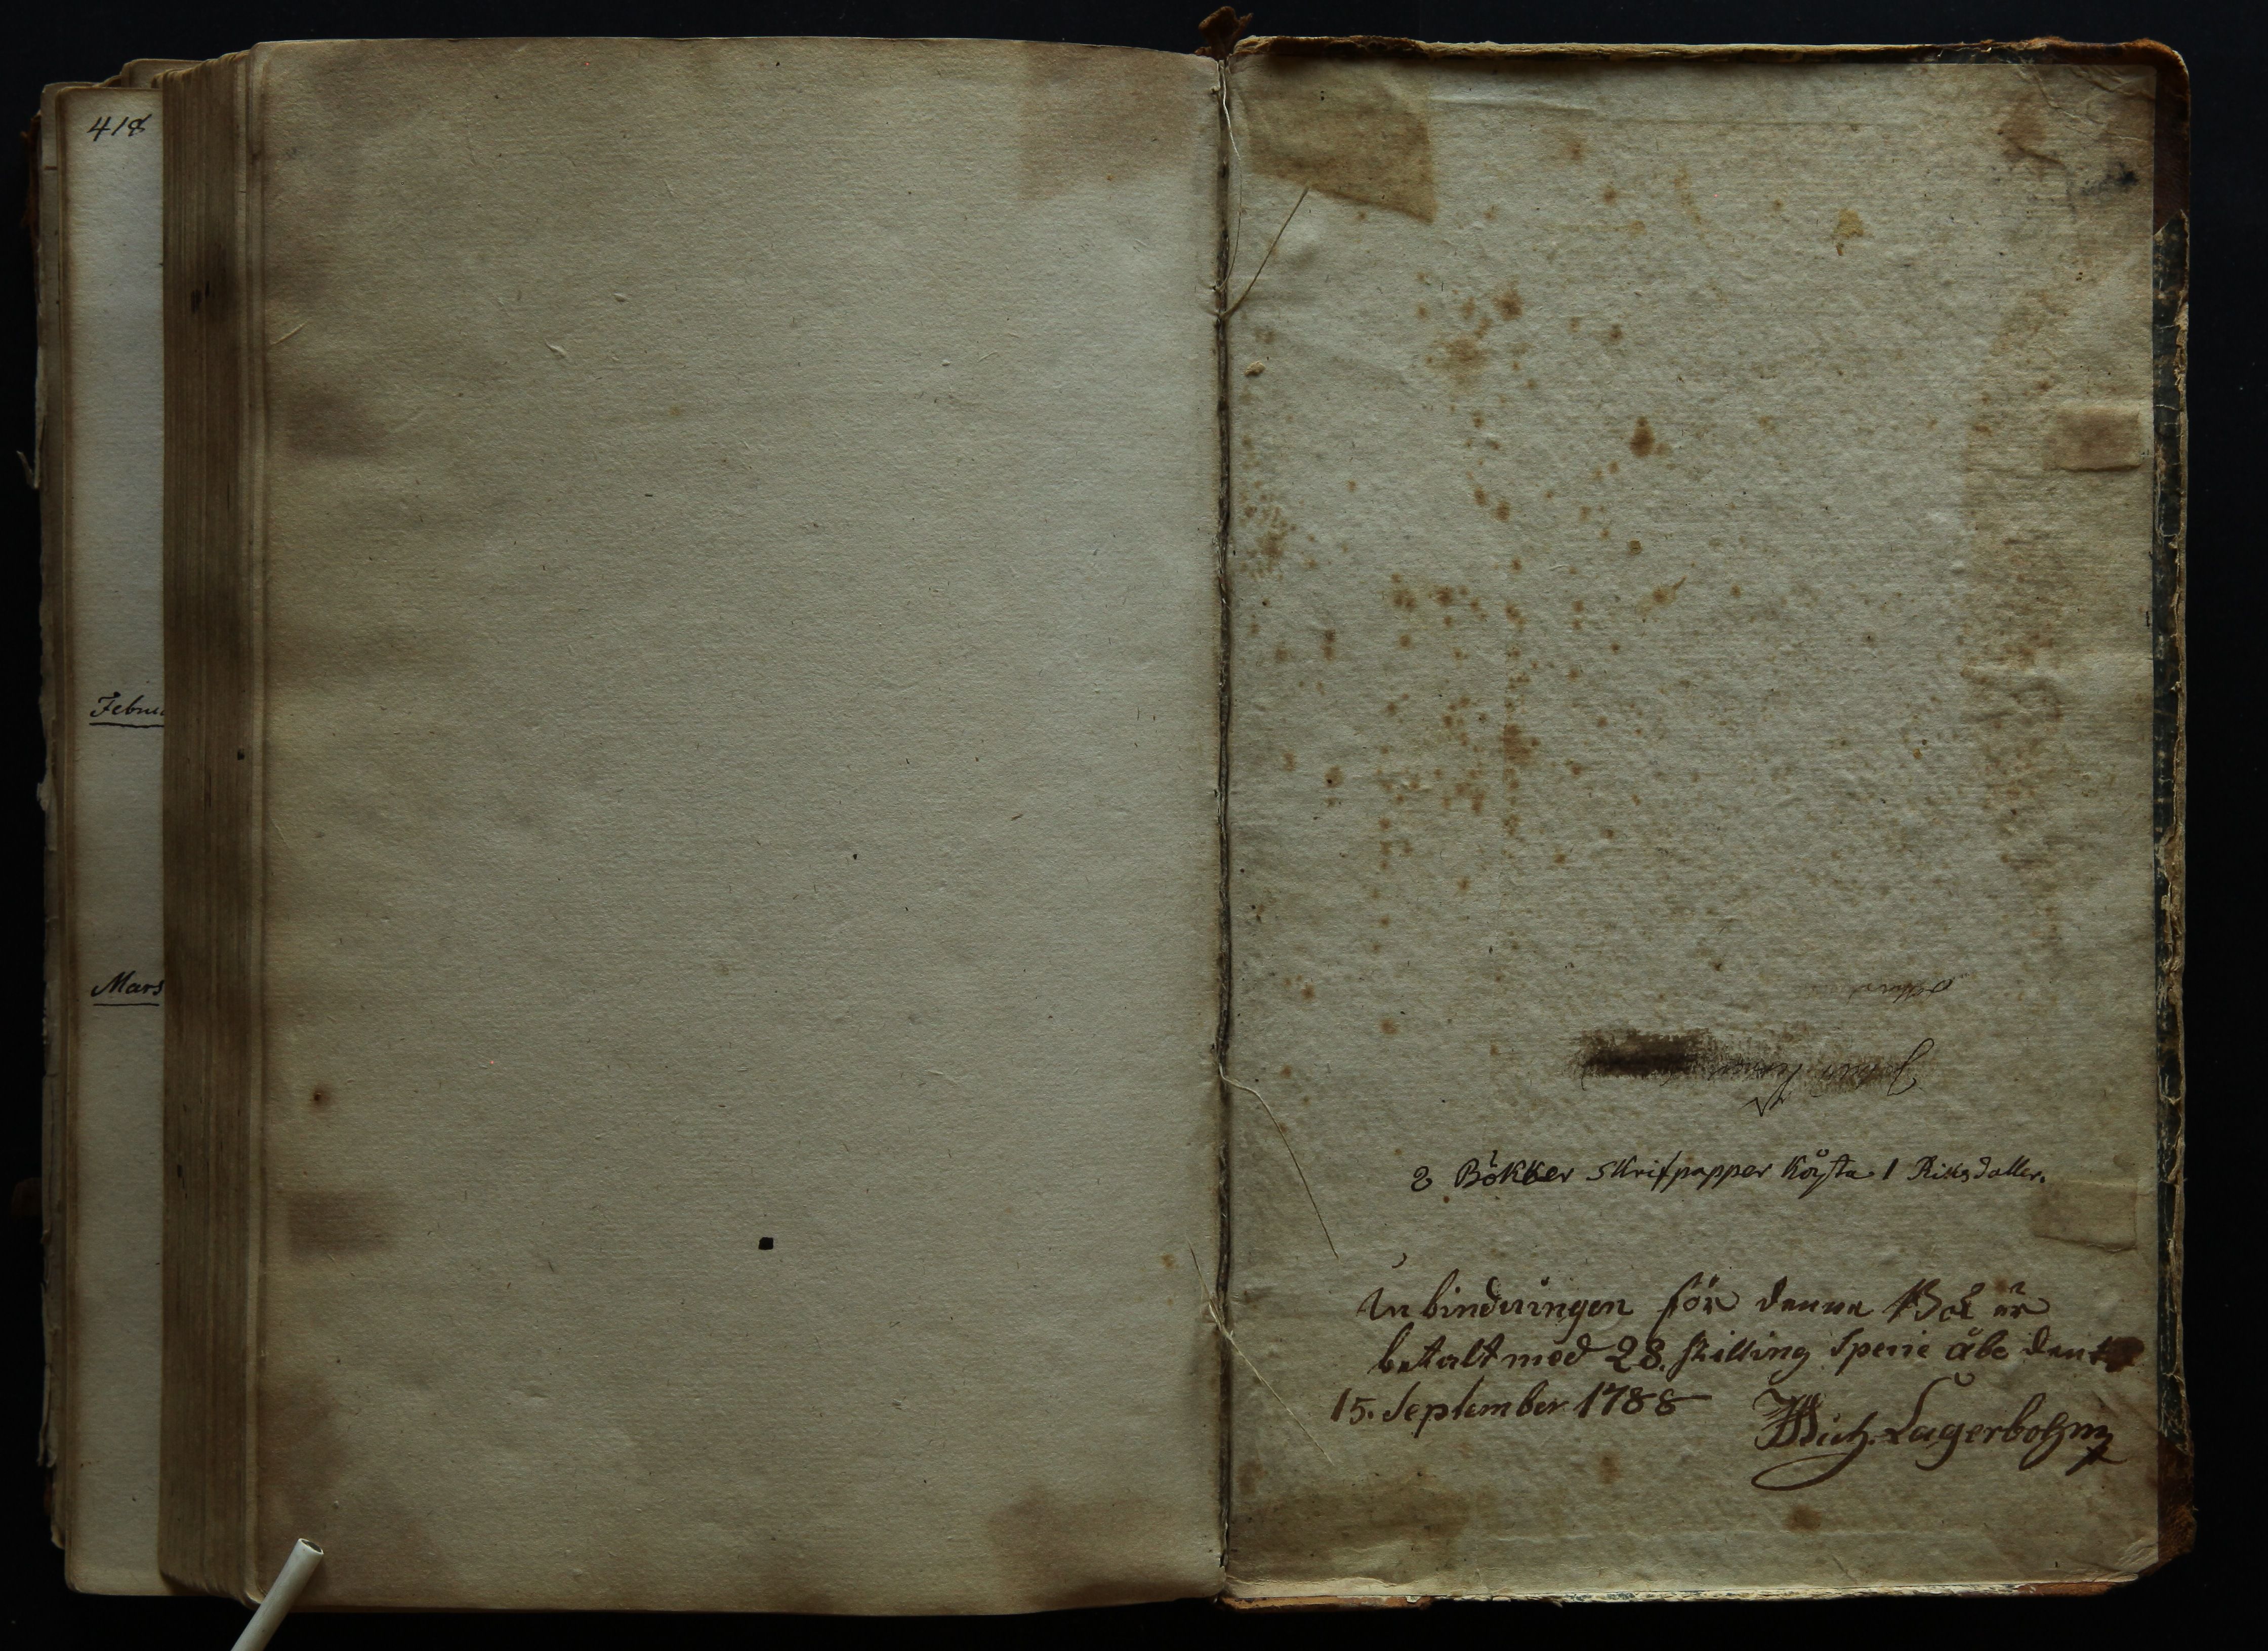 418
Februa
Mars
2 Bökker skrifpapper kåsta 1 Riksdaller.
Inbindningen för denna Bok är
betalt med 28. skilling Specie åbo den
15. September 1788
Mich. Lagerbohm